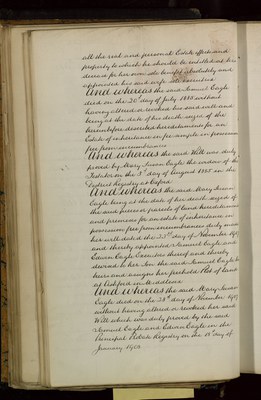 all the real and personal Estate effects and
property to which he should be entitled at his
decease for her own sole benefit absolutely and
appointed his said wife sole executrix
And whereas the said Samuel Eagle
died on the 20th day of July 1885 without
having altered or revoked his said will and
being at the date of his death seized of the
hereinbefore described hereditaments for an
Estate of inheritance in fee simple in possession
free from incumbrances
And whereas the said Will was duly
proved by Mary Susan Eagle the widow of the
Testator on the day of August 1885 in the
District Registry at Oxford
And whereas the said Mary Susan
Eagle being at the date of her death seized of
the said pieces or parcels of land hereditaments
and premises for an estate of inheritance in
possession free from incumbrances duly made
her will dated the day of November
and thereby appointed Samuel Eagle and
Edwin Eagle Executors thereof and thereby
devised to her Son the said Samuel Eagle his
heirs and assigns her freehold Plot of land
at Ashford in Middlesex
And whereas the said Mary Susan
Eagle died on the day of November
without having altered or revoked her said
Will which was duly proved by the said
Samuel Eagle and Edwin Eagle in the
Principal Probate Registry on the day of
January